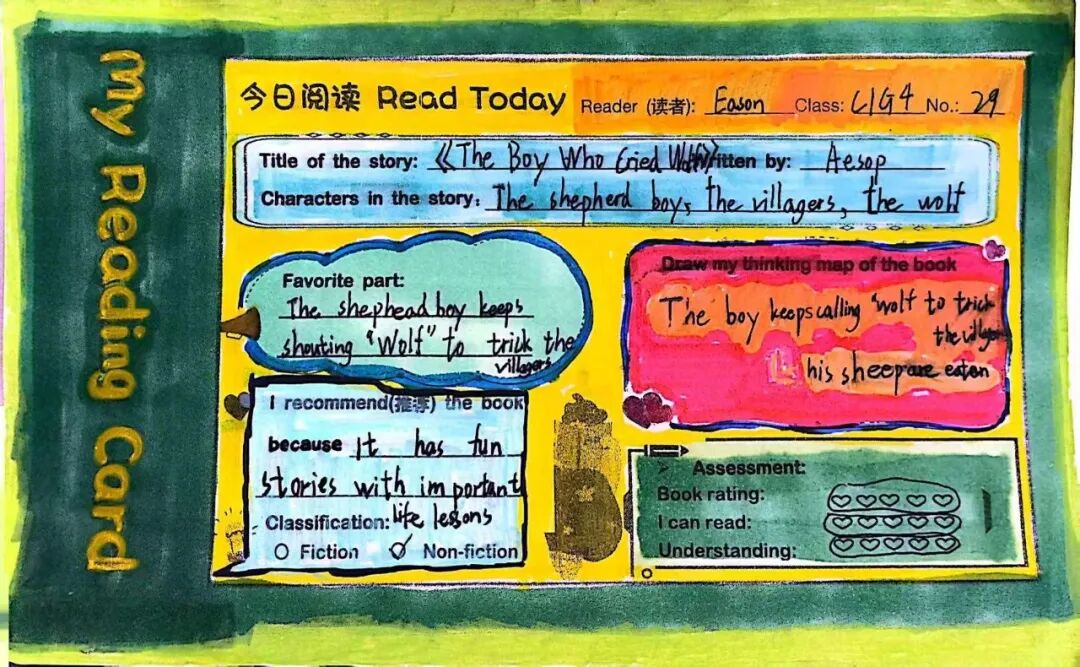 My Reading Card
今日阅读 Read Today Reader (读者): Eason Class: C1G4 No.: 29
Title of the story: 《The Boy Who Cried Wolf》Written by: Aesop
Characters in the story: The shepherd boy, the villagers, the wolf
Favorite part:
The shephead boy keeps
shouting "Wolf" to trick the
villagers
Draw my thinking map of the book
The boy keeps calling "wolf to trick
the villagers
his sheep are eaten
I recommend(推荐) the book
because It has fun
stories with important
Classification: life lessons
Fiction ✓ Non-fiction
Assessment:
Book rating:
I can read:
Understanding: